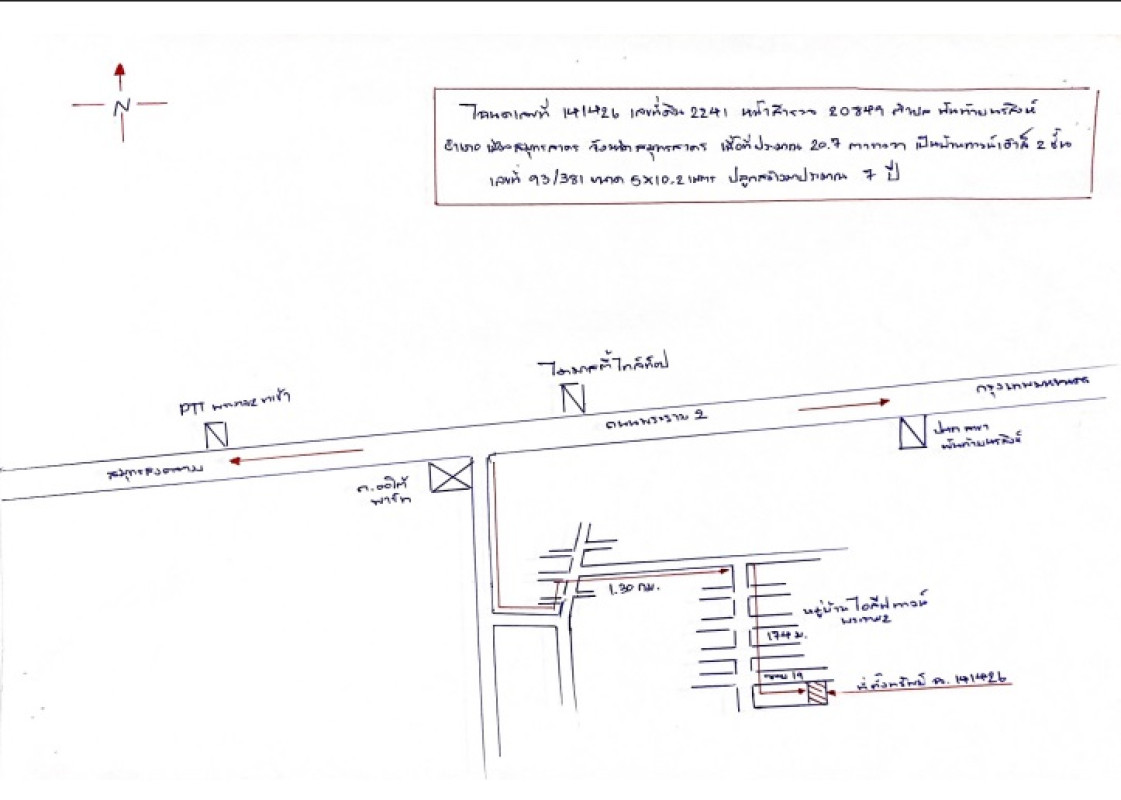 N
โฉนดเลขที่ 141426 เลขที่ดิน 2241 หน้าสำรวจ 20849 ตำบล พันท้ายนรสิงห์
อำเภอ เมืองสมุทรสาคร จังหวัด สมุทรสาคร เนื้อที่ประมาณ 20.7 ตารางวา เป็นบ้านทาวน์เฮ้าส์ 2 ชั้น
เลขที่ 93/381 ขนาด 5x10.2 เมตร ปลูกสร้างมาประมาณ 7 ปี
ไดนาสตี้ ไทล์ท็อป
กรุงเทพมหานคร
PTT พระราม2 ขาเข้า
ถนนพระราม 2
ปตท สาขา
พันท้ายนรสิงห์
สมุทรสงคราม
ค.ออโต้
พาร์ท
1.30 กม.
หมู่บ้าน ไอลีฟทาวน์
พระราม2
174 ม.
ซอย 19
ที่ตั้งทรัพย์ ฉ. 141426